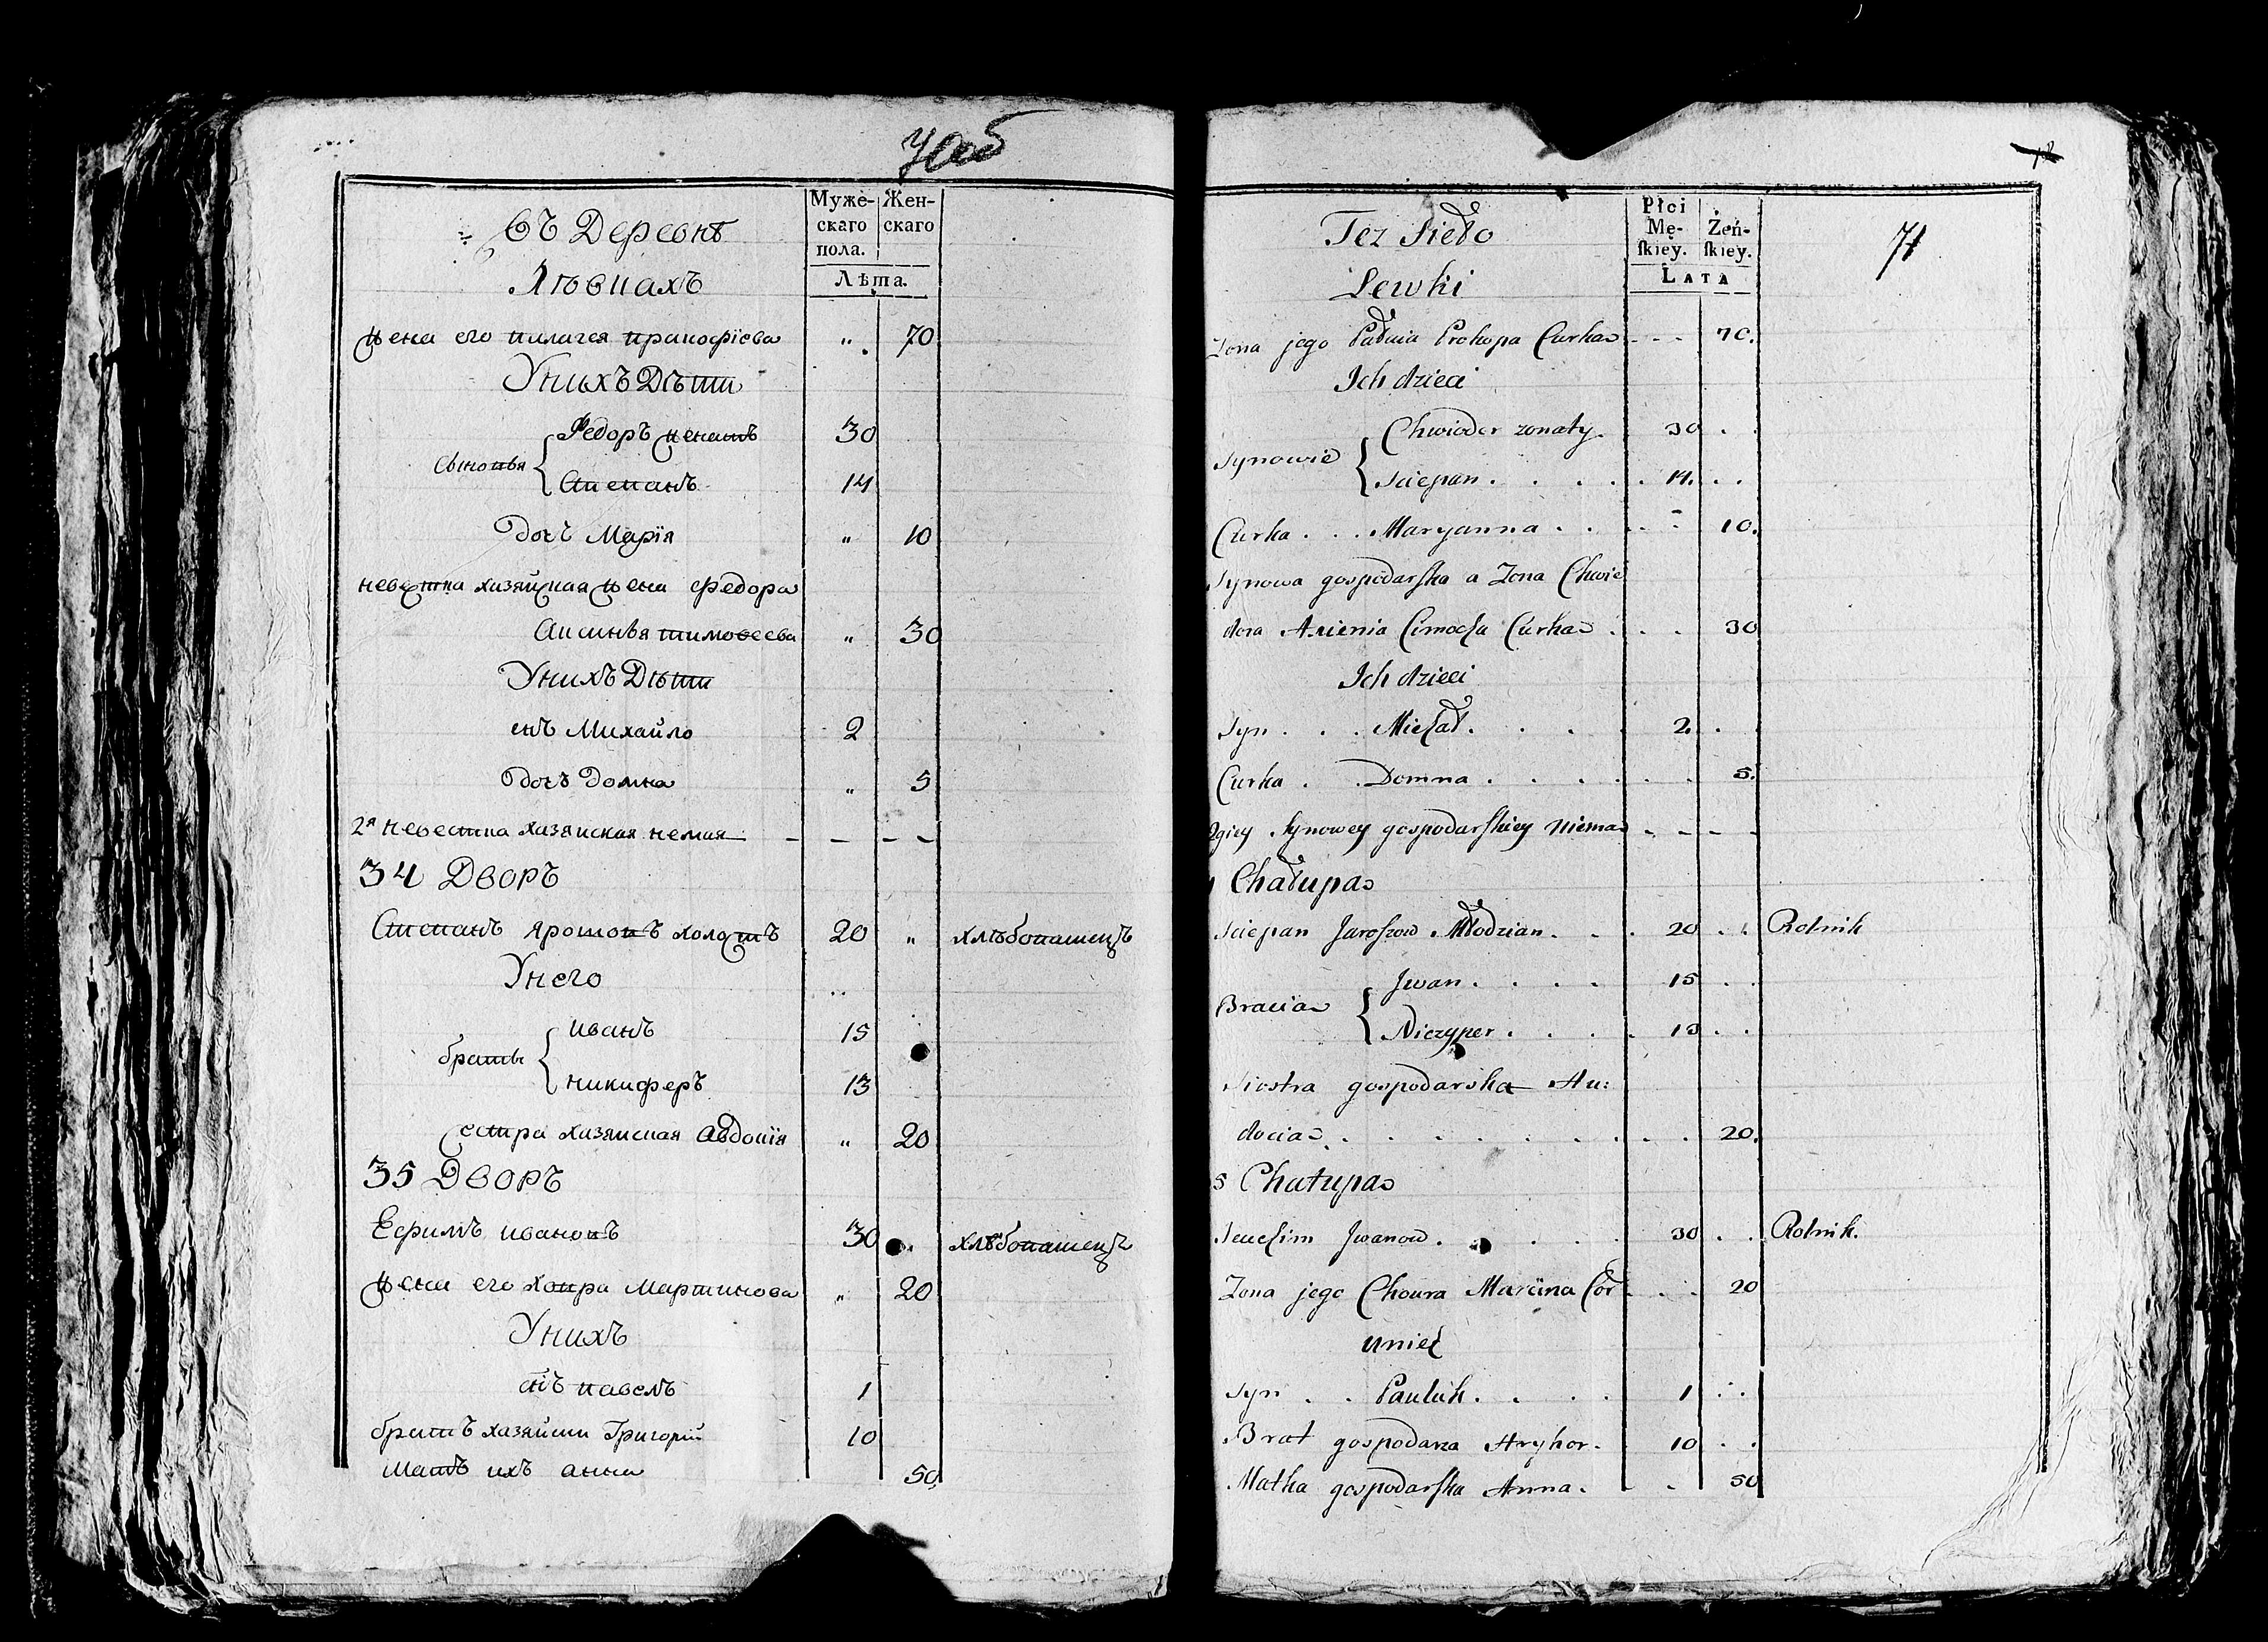 70об
Муже-
скаго
пола.
Жен-
скаго
Лѣта.
въ Деревнѣ
Лѣвкахъ
жена его пилагея пракофіева " 70
У нихъ Дѣти
Сыновья
Федоръ женатъ 30
Степанъ 14
дочь Марія " 10
невестка хазяйская жена федора
Аксинья тимофеева " 30
У нихъ Дѣти
снъ Михайло 2
дочь Домна " 5
2я невестка хазяиская немая - - - -
34 Дворъ
Степанъ ярошовъ холостъ 20 " хлѣбопашецъ
У него
братья
иванъ 15
никиферъ 13
сестра хазяиская Авдокія " 20
35 Дворъ
Ефимъ ивановъ 30 хлѣбопашецъ
жена его ховра мартинова " 20
У нихъ
снъ павелъ 1
братъ хазяйски Григорій 10
мать ихъ анна 50
71
Płci
Mę-
ſkiey.
Żeń-
ſkiey.
LATA
Tez Sioło
Lewki
Zona jego Pałaia Prokopa Curka - - - 70.
Ich dzieci
Synowie
Chwioder zonaty. 30 . .
Sciepan . . . . . 14. . .
Curka . . . Maryanna . . . . . 10.
Synowa gospodarſka a Zona Chwie
dora Axienia Cimocha Curka . . . 30
Ich dzieci
Syn . . . Michał . . . . 2. .
Curka . . Domna . . . . . . 5.
2giey Synowey gospodarſkiey niema - - - -
Chałupa
Sciepan Jaroszow Młodzian . . . 20 . . Rolnik
Bracia
Jwan . . . . 15 . .
Niczyper . . . . 13 . .
Siostra gospodarska Hu:
docia . . . . . . . . . 20.
5 Chałupa
Jeuchim Jwanow . . . . 30 . . Rolnik.
Zona jego Choura Marcina Cor . . . 20
unich
Syn . . Pauluk . . . . 1 . .
Brat gospodarza Hryhor . 10 . .
Matka gospodarſka Anna . - . 50